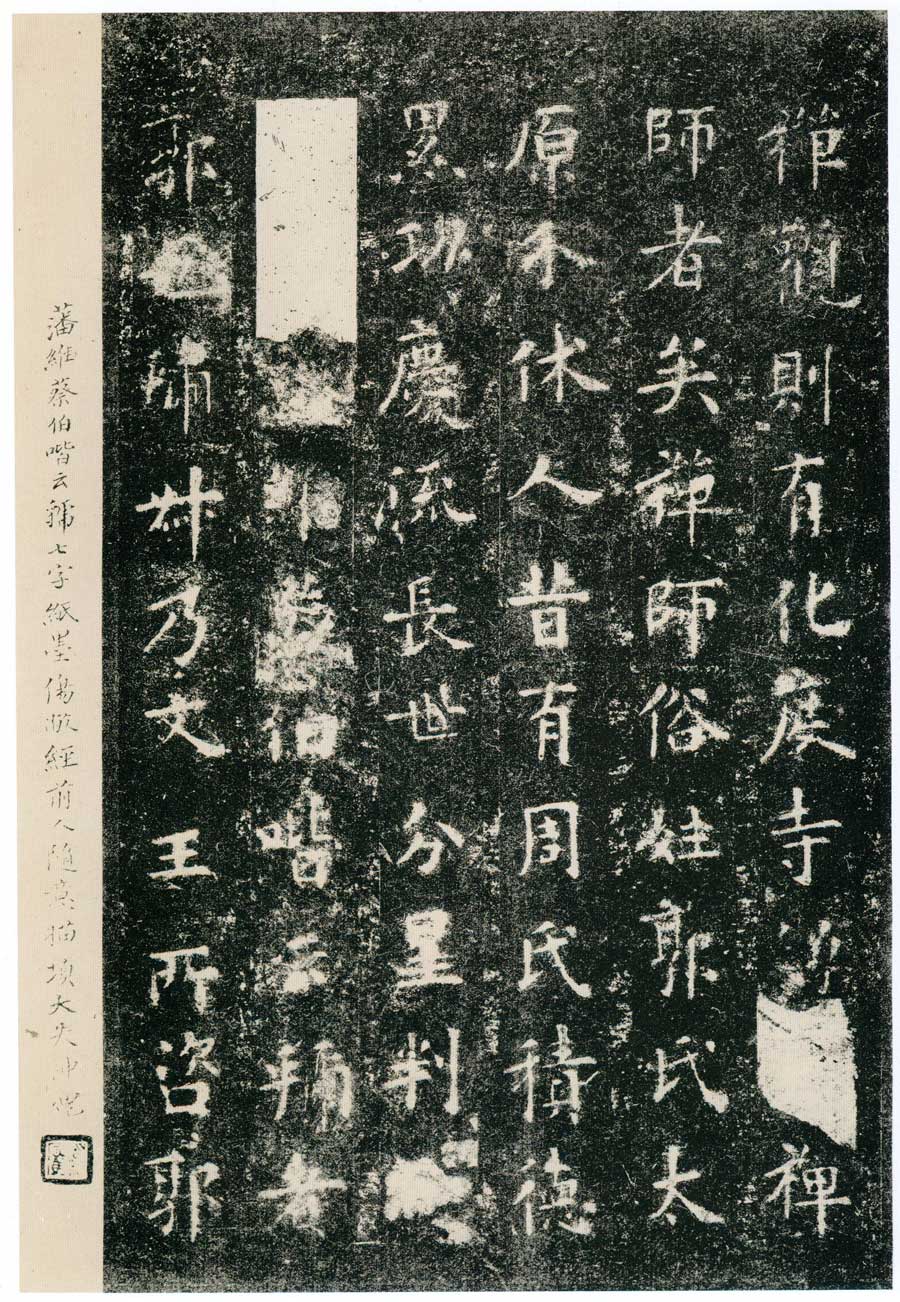 觀則有化度寺禪
師者矣禪師俗姓郭氏太
原介休人昔有周氏積德
累功慶流長世分星判
蔡伯喈云虢者
郭也虢叔乃文王所咨郭
藩維蔡伯喈云虢七字紙墨傷敝經前人隨意描填大失神